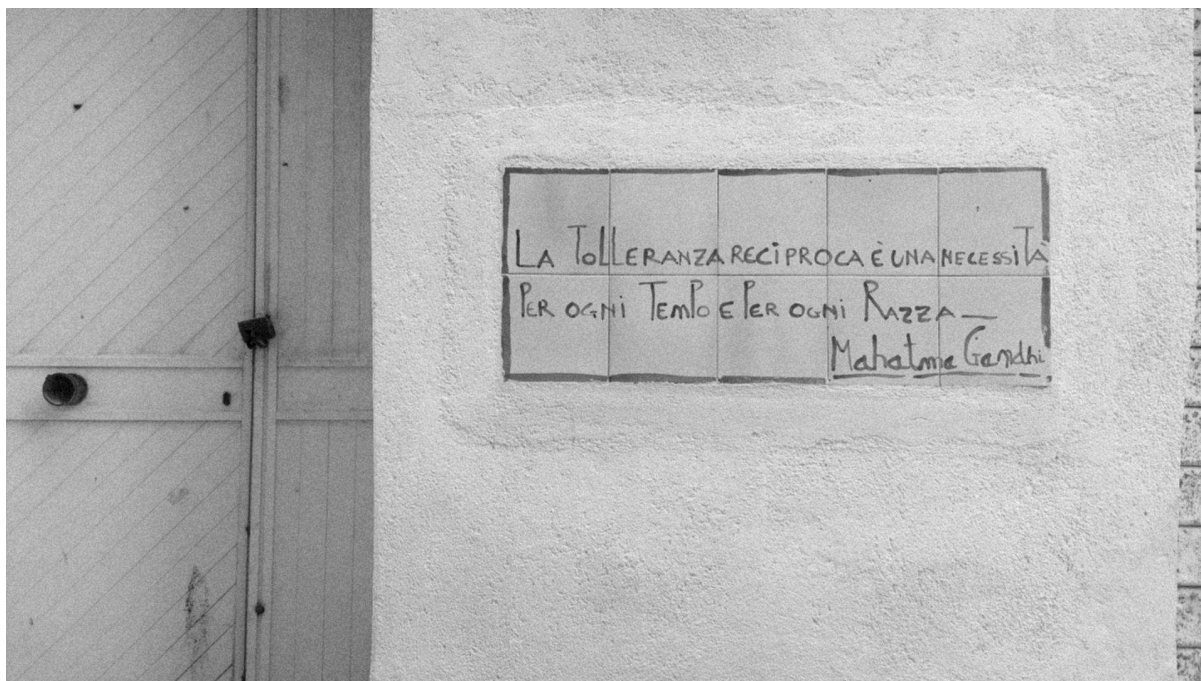 LA TOLLERANZA RECIPROCA È UNA NECESSITÀ
PER OGNI TEMPO E PER OGNI RAZZA —
Mahatma Gandhi